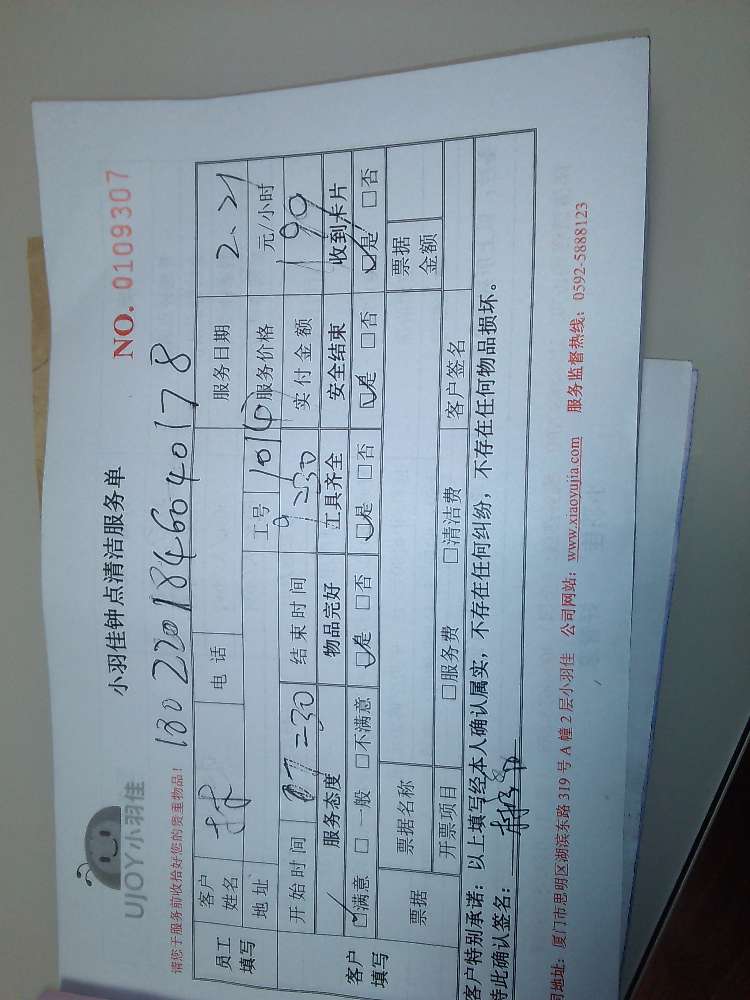 UJOY小羽佳
小羽佳钟点清洁服务单
NO. 0109307
请您于服务前收恰好您的贵重物品！
1802201846040178
员工填写 客户姓名 林 电话 服务日期 2、21
地址 工号 服务价格 元/小时
开始时间 07=30 结束时间 9=30 实付金额 190
客户填写 服务态度 物品完好 工具齐全 安全结束 收到卡片
☑满意 □一般 □不满意 ☑是 □否 ☑是 □否 ☑是 □否 ☑是 □否
票据 票据名称 票据金额
开票项目 □服务费 □清洁费 客户签名
客户特别承诺：以上填写经本人确认属实，不存在任何纠纷，不存在任何物品损坏。
特此确认签名：
司地址：厦门市思明区湖滨东路 319 号 A 幢 2 层小羽佳 公司网站：www.xiaoyujia.com 服务监督热线：0592-5888123